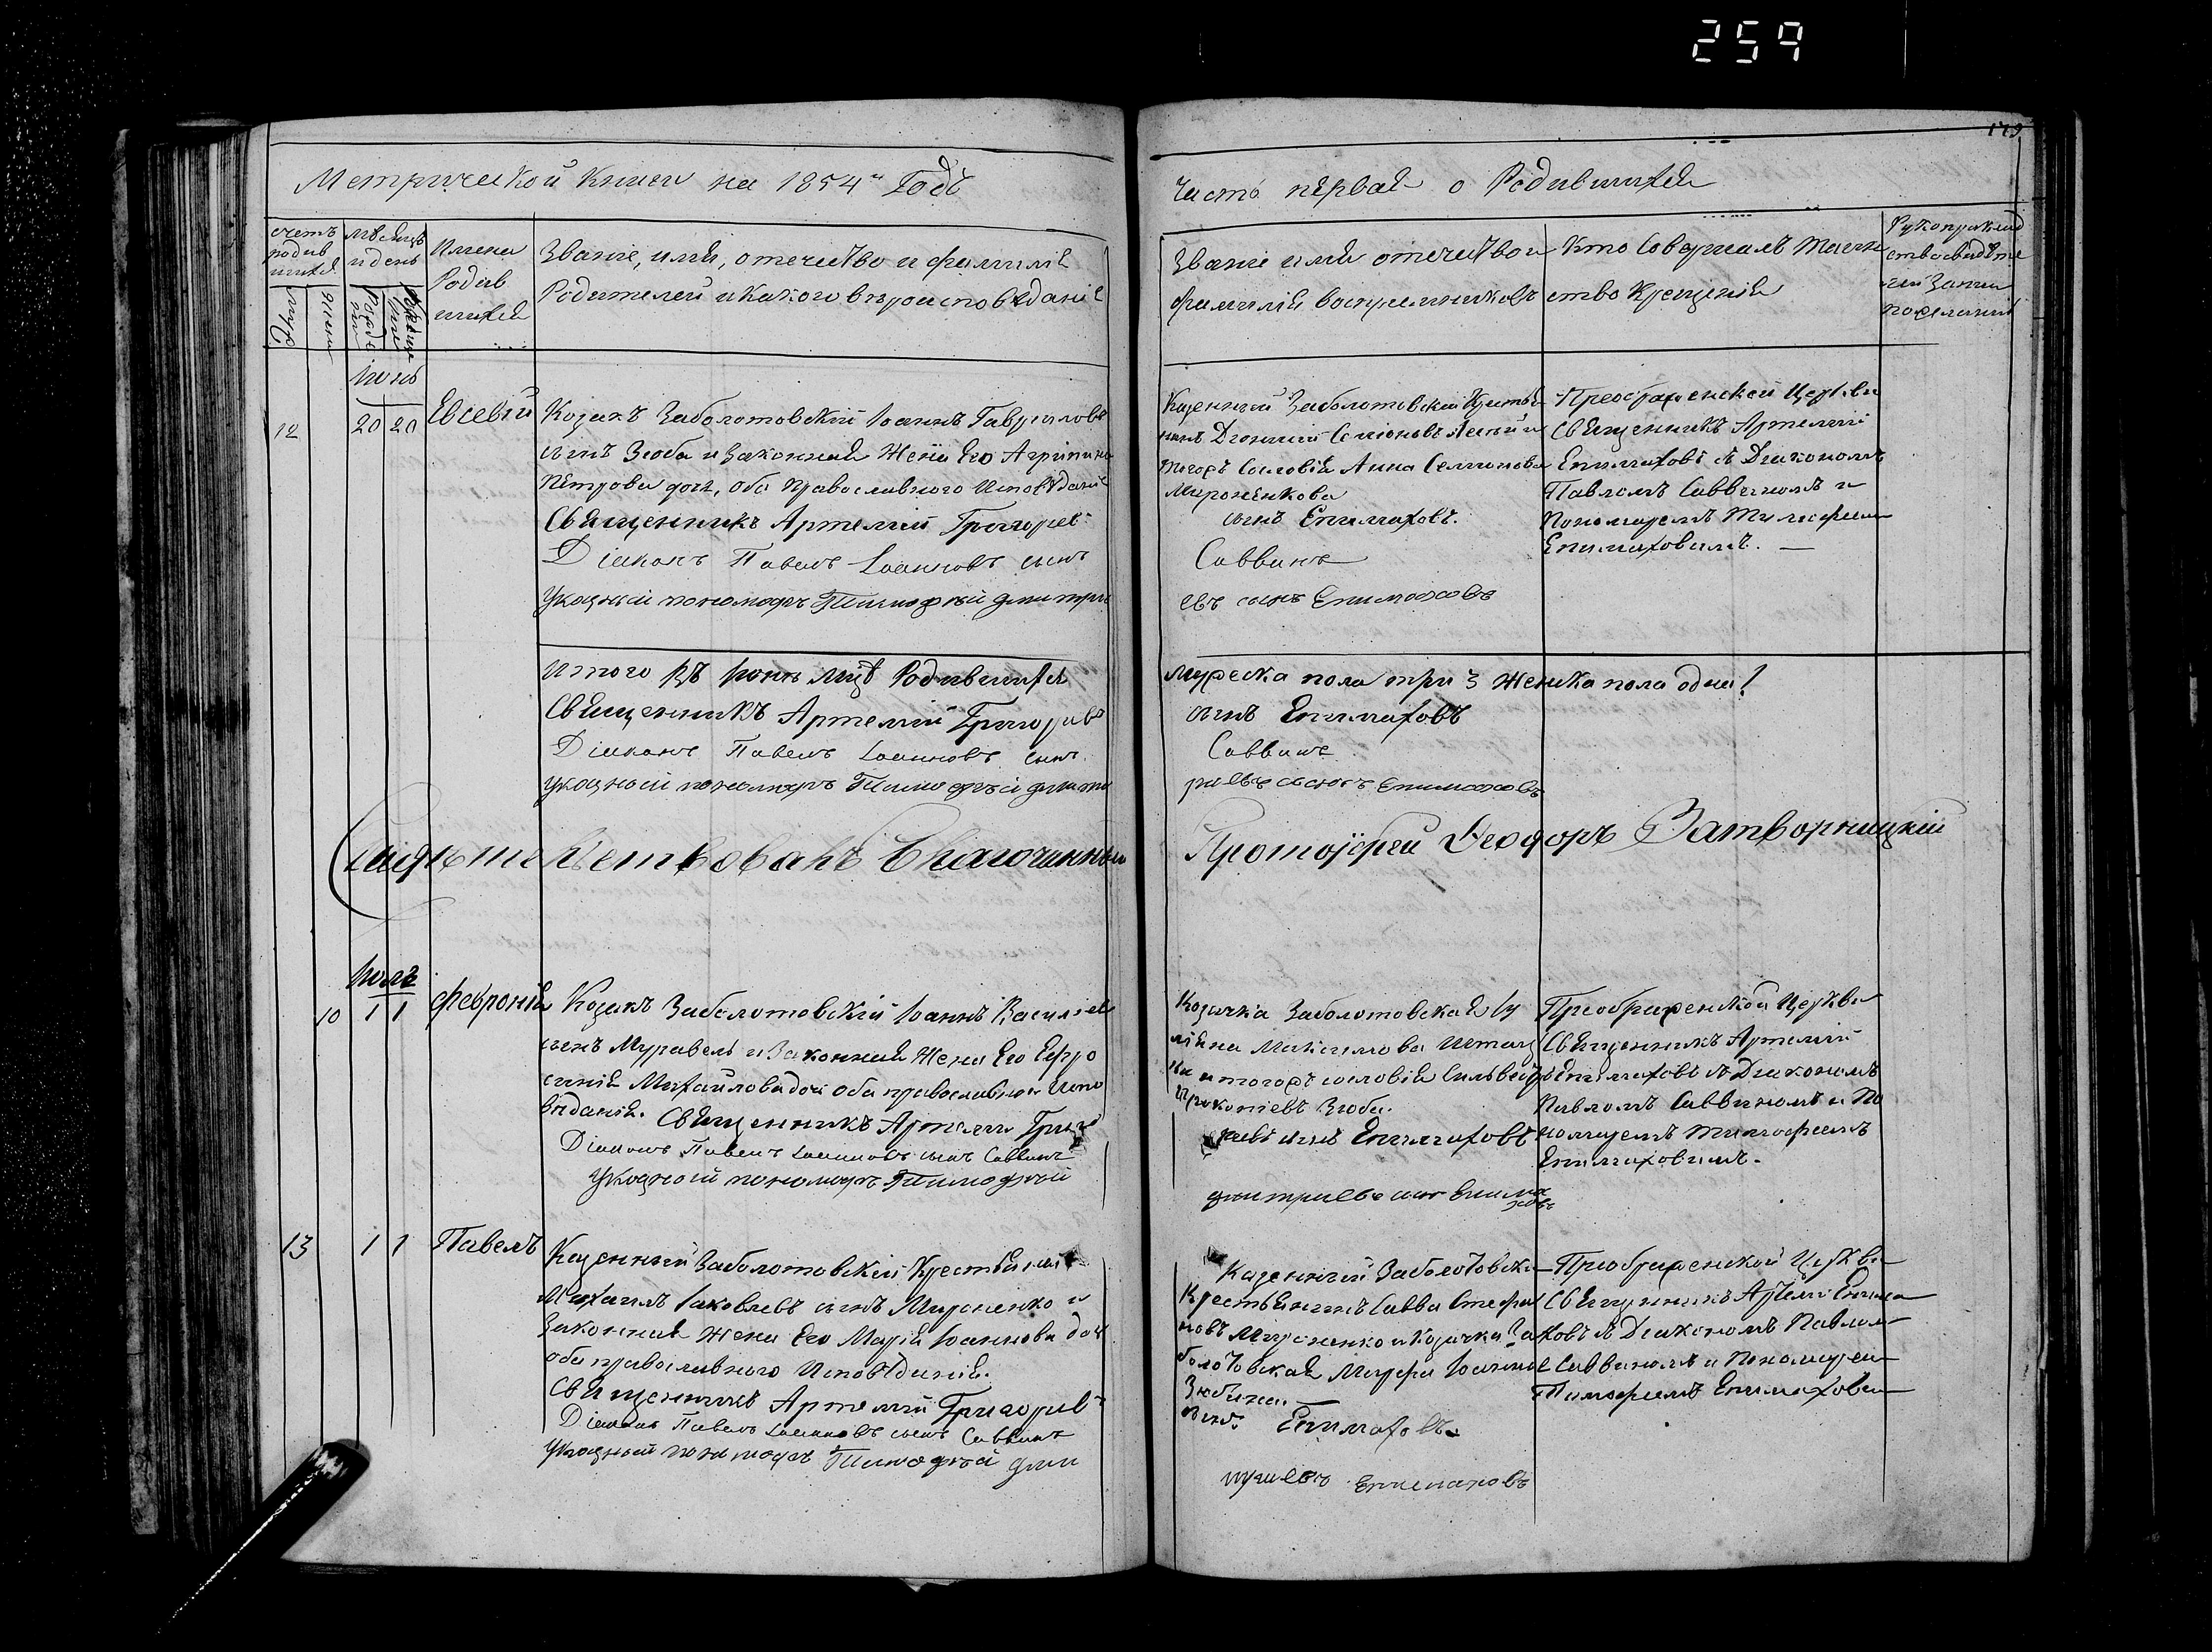 259
179
Метрической Книги на 1854й Годъ
Часть первая о Родившихся
счетъ родив шихся
муж
жен
мѣсяцъ и день
рожде нія
креще нія
Имена Родив шихся
Званіе, имя, отечество и фамилія
Родителей и какого вѣроисповѣданія
Званіе имя отечество и
фамилія воспріемниковъ
Кто Совершалъ таин
ство Крещенія
Рукоприклад
ство свидѣте
лей записи
по желанію
Іюнь
12
20 20
Евсевій
Козакъ Заболотовскій Іоаннъ Гавріиловъ
сынъ Зюба и законная Жена Его Агрипина
Петрова доч, оба Православного Исповѣданія
Священникъ Артемій Григорев
Діаконъ Павелъ Іоанновъ сынъ
Указный пономарь Тимофѣй Дмитри
Казенный Заболотовскій Крестья
нинъ Діонисій Семіоновъ и
тогожъ Сословія Анна Семионова
Мироненкова
сынъ Епимаховъ.
Саввинъ
евъ сынъ Епимаховъ
Преображенской Церкви
Священникъ Артемій
Епимаховъ съ Діакономъ
Павломъ Саввиномъ и
Пономаремъ Тимофеем
Епимаховимъ. —
Итого въ Іюнѣ мцѣ Родившихся
Священникъ Артемій Григоревъ
Діаконъ Павелъ Іоанновъ сынъ.
Указный пономарь Тимофѣй Дмит
мужеска пола три 3 Женска пола одна 1
сынъ Епимаховъ
Саввинъ
ріевъ сынъ Епимаховъ
Свидѣтельствовалъ Благочинный
Протоіерей Ѳеодоръ Затворницкій
Іюль
10
1 1
Февронія
Козакъ Заболотовскій Іоаннъ Василіев
сынъ Муравель и Законная Жена Его Ефро
синія Михайлова доч оба православного Испо
вѣданія. Священникъ Артемій Григо
Діаконъ Павелъ Іоанновъ сынъ Саввинъ
Указной пономарь Тимофѣй
Козачка Заболотовская Іу
ліяна Максимова
и тогожъ сословія Сильвестръ
Прокопіевъ Зюба.
ріевъ сынъ Епимаховъ
Дмитріевъ сынъ Епима
ховъ
Преображенской Церкви
Священникъ Артемій
Епимаховъ съ Діакономъ
Павломъ Саввиномъ и По
номаремъ Тимофеемъ
Епимаховимъ.
13
1 1
Павелъ
Казенный Заболотовскій Крестьянинъ
Михаилъ Іаковлевъ сынъ Мироненко и
Законная Жена Его Марія Іоаннова доч
оба православного Исповѣданія.
Священникъ Артемій Григорев
Діаконъ Павелъ Іоанновъ сынъ Саввинъ
Указный пономарь Тимофѣй Дми
Казенный Заболотовскі
Крестьянинъ Савва Стефа
новъ Мироненко и Козачка За
болотовская Марфа Іоаннов
Зюбина.
Епимаховъ.
триевъ Епимаховъ
Преображенской Церкви
Священникъ Артемій Епима
ховъ съ Діакономъ Павлом
Саввиномъ и Пономарем
Тимофеемъ Епимахови